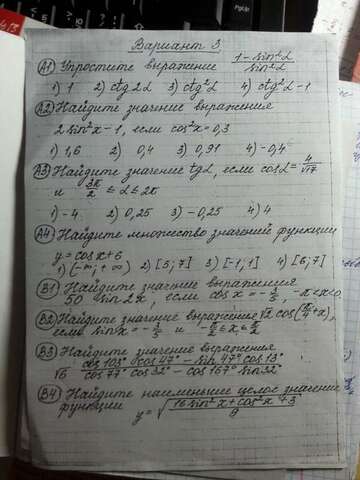 Вариант 3
А1 Упростите выражение (1 - sin²α)/(sin²α)
1) 1 2) ctg 2α 3) ctg²α 4) ctg²α - 1
А2 Найдите значение выражения
2 sin²x - 1, если cos²x = 0,3
1) 1,6 2) 0,4 3) 0,91 4) -0,4
А3 Найдите значение tgα, если cosα = 4/√17
и 3π/2 ≤ α ≤ 2π
1) -4 2) 0,25 3) -0,25 4) 4
А4 Найдите множество значений функции
y = cos x + 6
1) (-∞; +∞) 2) [5; 7] 3) [-1; 1] 4) [6; 7]
В1 Найдите значение выражения
50 sin 2x, если cos x = -3/5, -π < x < 0
В2 Найдите значение выражения √2 cos(π/4 + x),
если sin x = -3/5 и -π/2 ≤ x ≤ π/2
В3 Найдите значение выражения
√6 (cos 103° cos 47° - sin 47° cos 13°)/(cos 77° cos 32° - cos 167° sin 32°)
В4 Найдите наименьшее целое значение
функции y = √((16 sin²x + cos²x + 3)/9)